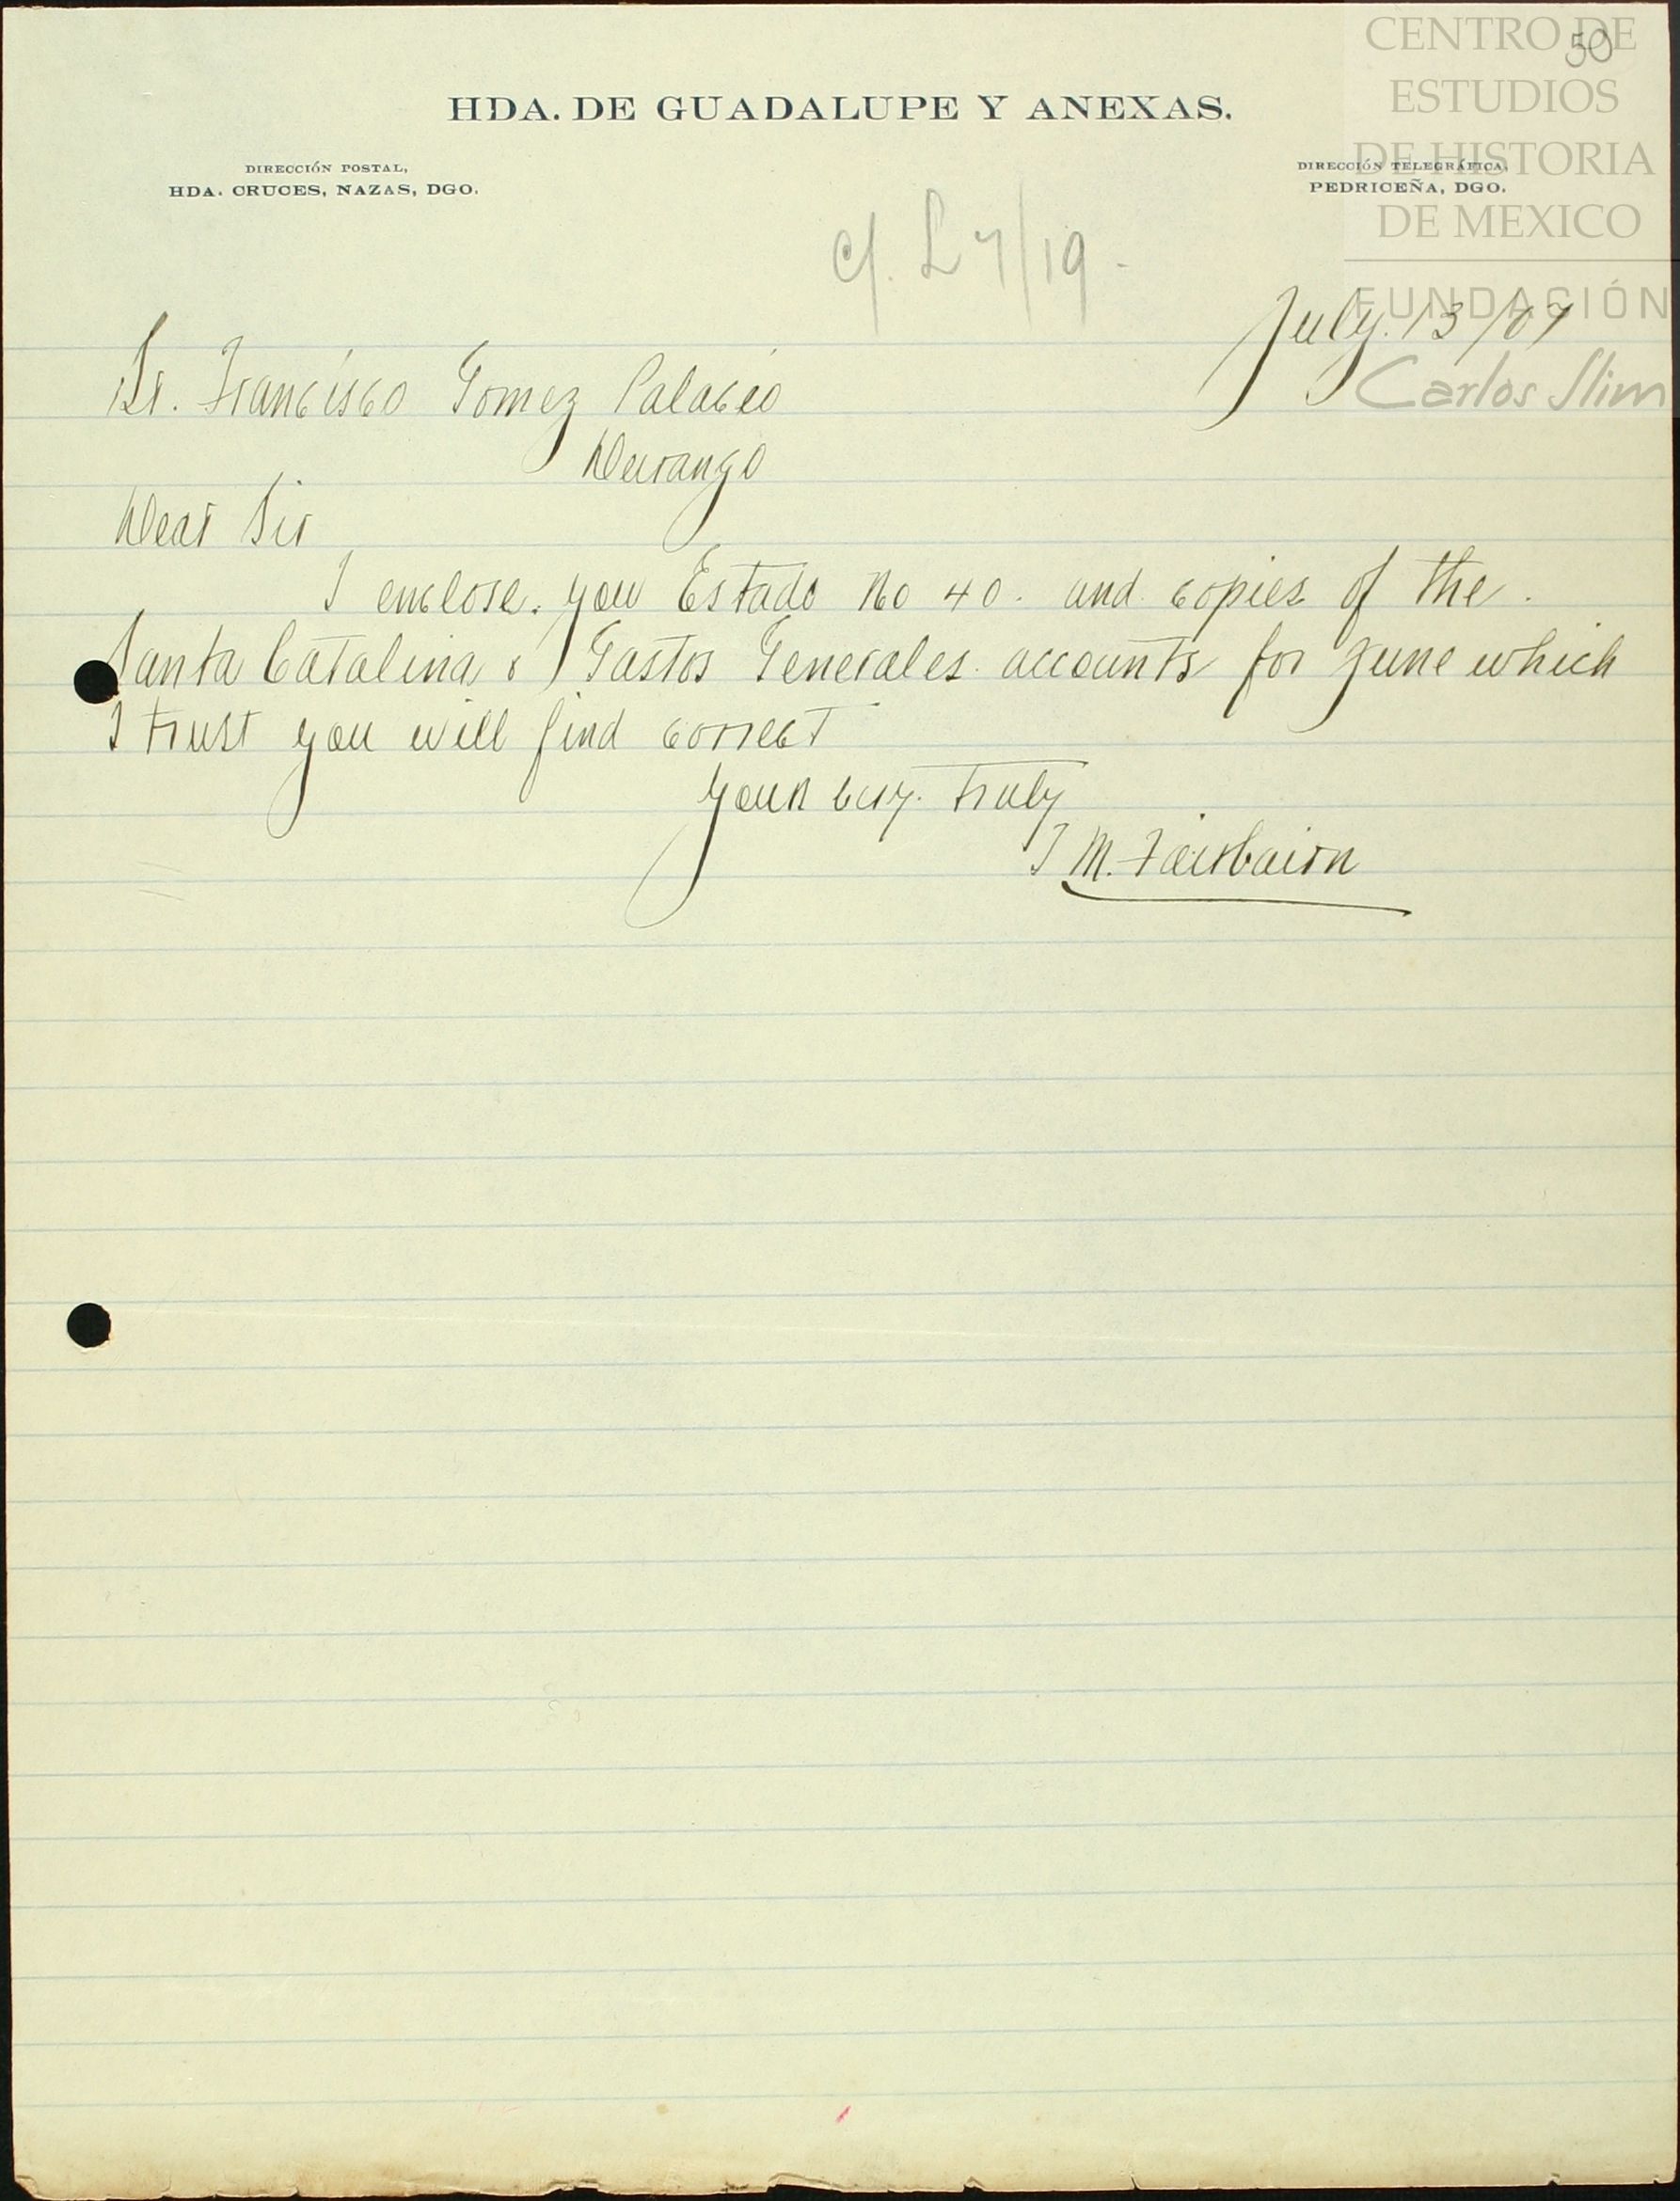 CENTRO DE
50
ESTUDIOS
DE HISTORIA
DE MEXICO
FUNDACIÓN
Carlos Slim
HDA. DE GUADALUPE Y ANEXAS.
DIRECCIÓN POSTAL,
HDA. CRUCES, NAZAS, DGO.
DIRECCIÓN TELEGRÁFICA,
PEDRICEÑA, DGO.
c/. L 7/19-
July. 13/07
Sr. Francisco Gomez Palacio
Durango
Dear Sir
I enclose. you Estado No 40. and copies of the.
Santa Catalina & Gastos Generales accounts for June which
I trust you will find correct
Yours very. truly
J M. Fairbairn